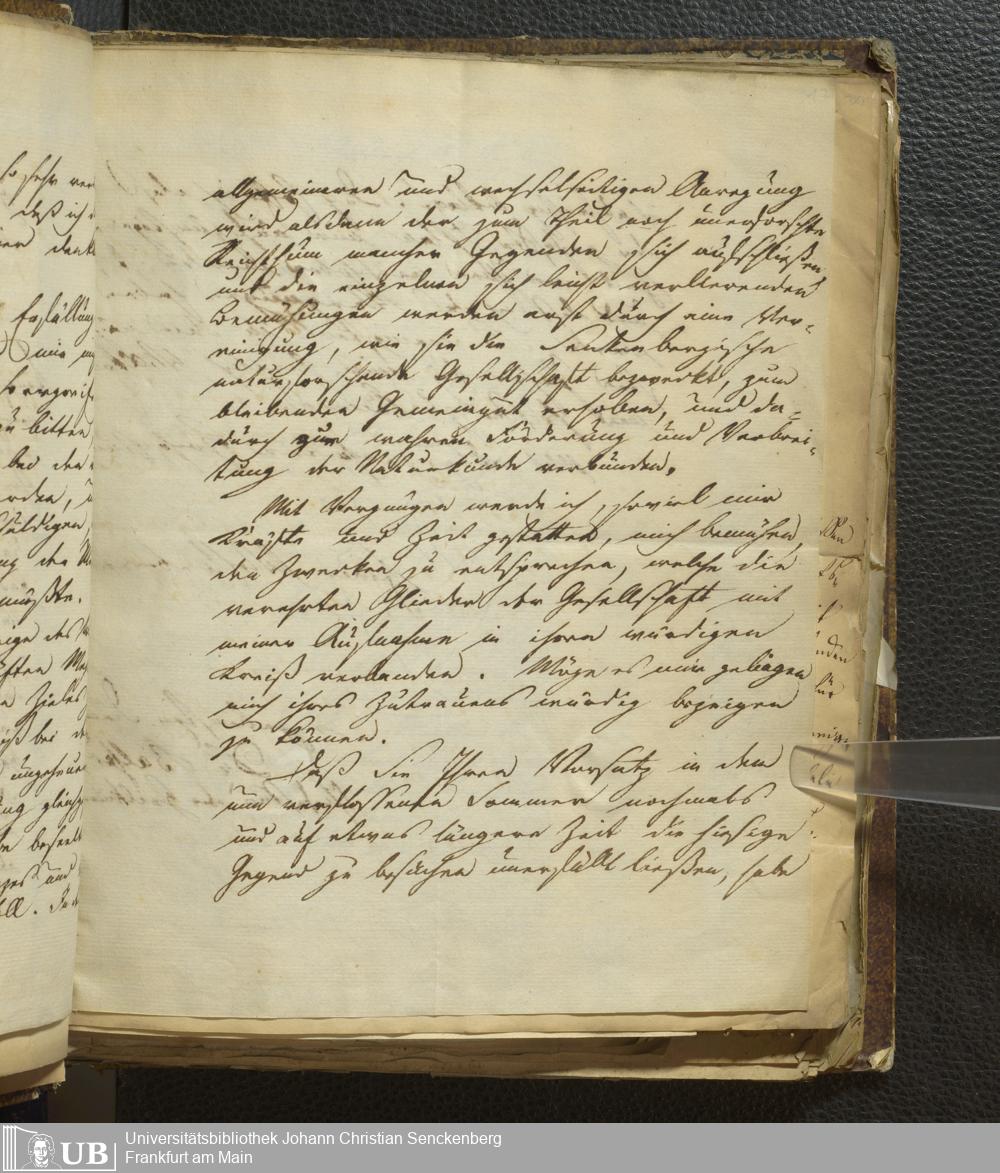 allgemeineren und wechselseitigen Anregung
wird alsdann der zum Theil noch unerforschte
Reichthum mancher Gegenden sich aufschließen,
und die einzelnen sich leicht verlierenden
Bemühungen werden erst durch eine Ver-
einigung, wie sie die Senkenbergische
naturforschende Gesellschaft bezweckt, zum
bleibenden Gemeingut erhoben, und da-
durch zur wahren Förderung und Verbrei-
tung der Naturkunde verbunden.
Mit Vergnügen werde ich, soviel mir
Kräfte und Zeit gestatten, mich bemühen,
den Zwecken zu entsprechen, welche die
verehrten Glieder der Gesellschaft mit
meiner Aufnahme in ihren würdigen
Kreiß verbanden. Möge es mir gelingen
mich ihres Zutrauens würdig bezeigen
zu können.
Daß Sie Ihren Vorsatz in dem
nun verflossenen Sommer nochmals
und auf etwas längere Zeit die hiesige
Gegend zu besuchen unerfüllt ließen, habe
so sehr
daß ich
Erfüllung
mir
zu bitten
bei der
müßte.
Zieles
bei
und
UB
Universitätsbibliothek Johann Christian Senckenberg
Frankfurt am Main